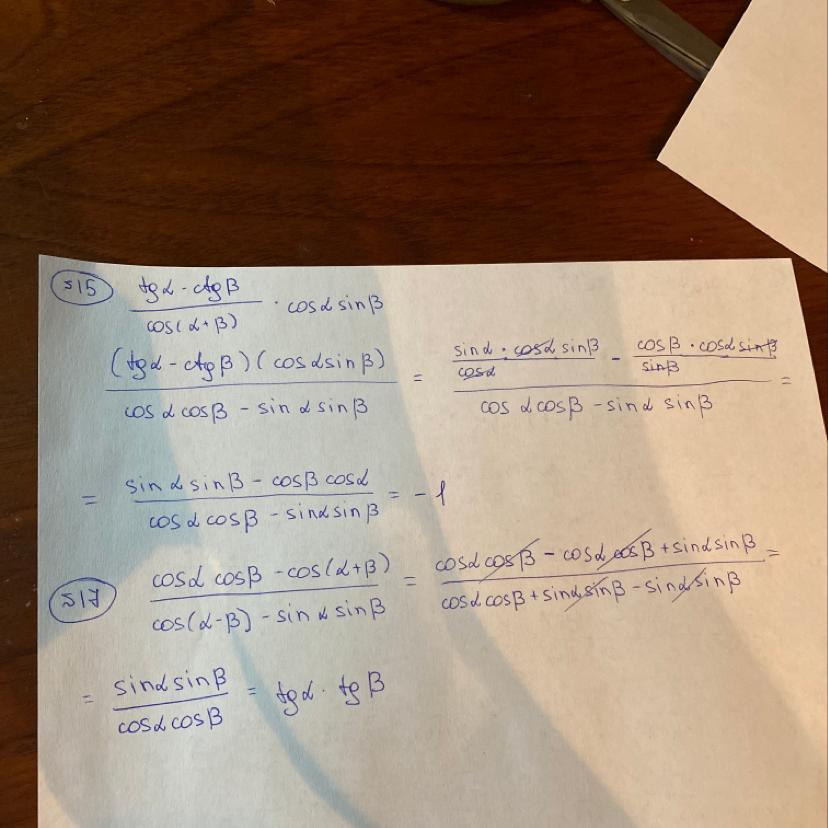 515 (tgα - ctgβ)/cos(α+β) · cosα sinβ
((tgα - ctgβ)(cosα sinβ))/(cosα cosβ - sinα sinβ) = ((sinα · cosα sinβ)/cosα - (cosβ · cosα sinβ)/sinβ)/(cosα cosβ - sinα sinβ) =
= (sinα sinβ - cosβ cosα)/(cosα cosβ - sinα sinβ) = -1
517 (cosα cosβ - cos(α+β))/(cos(α-β) - sinα sinβ) = (cosα cosβ - cosα cosβ + sinα sinβ)/(cosα cosβ + sinα sinβ - sinα sinβ) =
= (sinα sinβ)/(cosα cosβ) = tgα · tgβ